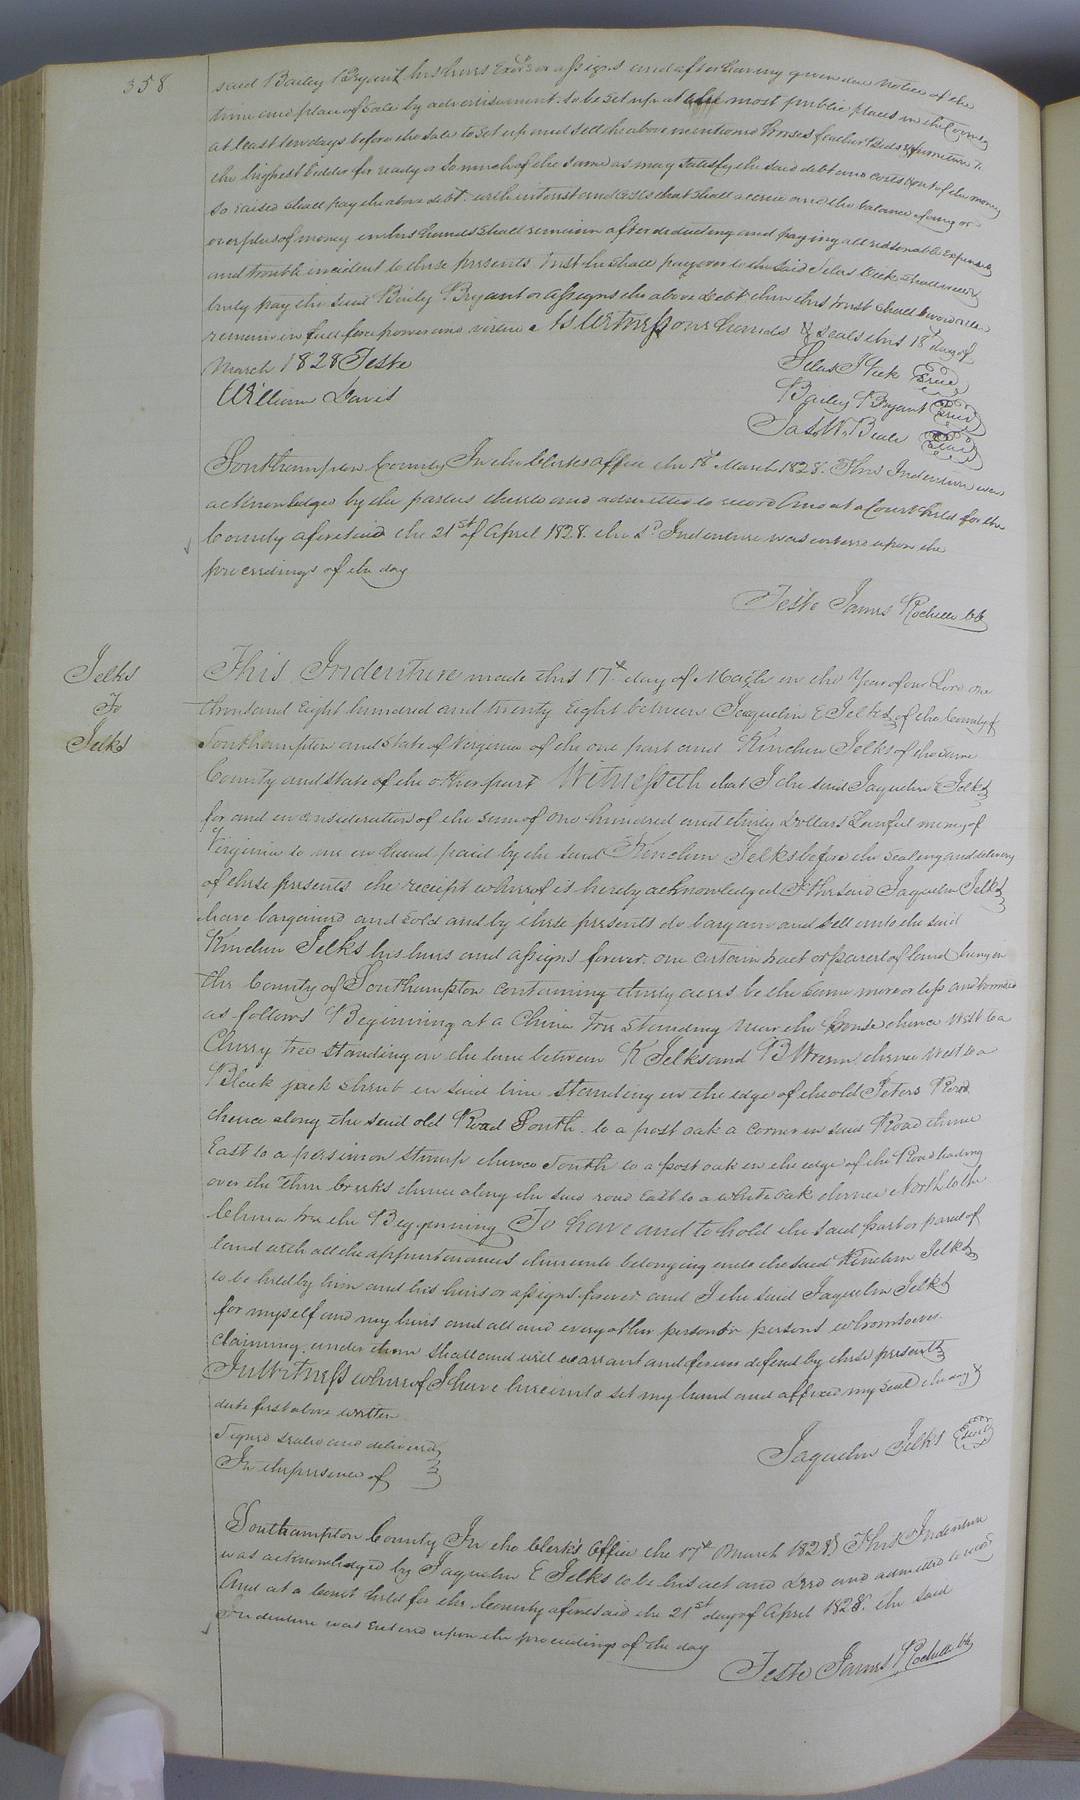 358
said Bailey Bryant his heirs Exors or assigns and after having given due notice of the
time and place of Sale by advertisement. to be set up at the most public places in the County
at least ten days before the sale to set up and sell the above mentioned horses feather Beds & furniture to
the highest bidder for ready or so much of the same as may satisfy the said debt and costs & out of the money
so raised shall pay the above debt. with interest and costs that shall accrue and the balance if any or
overplus of money in his hands shall remain after deducting and paying all reasonable expenses
and trouble incident to these presents Trust he shall pay over to the said Silas
truly pay the said Baily Bryant or assigns the above debt then this trust shall be void else
remain in full force power and virtue. As Witness our hands & seals this 18th day of
March 1828 Teste
William Davis
Silas J Seal
Bailey Bryant Seal
Jas. W. Beale Seal
Southampton County In the Clerks office the 18th March 1828. This Indenture was
acknowledged by the parties thereto and admitted to record And at a Court held for the
County aforesaid the 21st of April 1828. the sd Indenture was entered upon the
proceedings of the day
Teste James Rochelle CC
Jelks
To
Jelks
This Indenture made this 17th day of March in the Year of our Lord one
thousand Eight hundred and twenty Eight between Jaquelin E Jelks of the County of
Southampton and State of Virginia of the one part and Kinchen Jelks of the same
County and state of the other part Witnesseth that I the said Jaquelin E Jelks
for and in consideration of the sum of One hundred and thirty Dollars Lawful money of
Virginia to me in hand paid by the said Kinchen Jelks before the sealing and delivery
of these presents the receipt whereof is hereby acknowledged I the said Jaquelin Jelks
have bargained and sold and by these presents do bargain and sell unto the said
Kinchen Jelks his heirs and assigns forever. one certain tract or parcel of land lying in
the County of Southampton containing thirty acres be the same more or less and bounded
as follows Beginning at a China Tree standing near the house thence West to a
Cherry tree standing on the line between K Jelks and B Wrenn thence West to a
Black jack shrub in said line standing in the edge of the old Peters Road
thence along the said old Road South. to a post oak a corner in said Road thence
East to a persimon stump thence South to a post oak in the edge of the Road leading
over the three creeks thence along the said road East to a white oak thence North to the
China tree the Beginning To have and to hold the said part or parcel of
land with all the appurtenances thereunto belonging unto the said Kinchen Jelks
to be held by him and his heirs or assigns forever and I the said Jaquelin Jelks
for myself and my heirs and all and every other person or persons whomsoever
claiming under them shall and will warrant and forever defend by these presents
In Witness whereof I have hereunto set my hand and affixed my seal the day &
date first above written
Signed sealed and delivered
In the presence of
Jaquelin Jelks Seal
Southampton County In the Clerk's Office the 17th March 1828 This Indenture
was acknowledged by Jaquelin E Jelks to be his act and deed and admitted to record
And at a Court held for the County aforesaid the 21st day of April 1828. the said
Indenture was entered upon the proceedings of the day
Teste James Rochelle CC